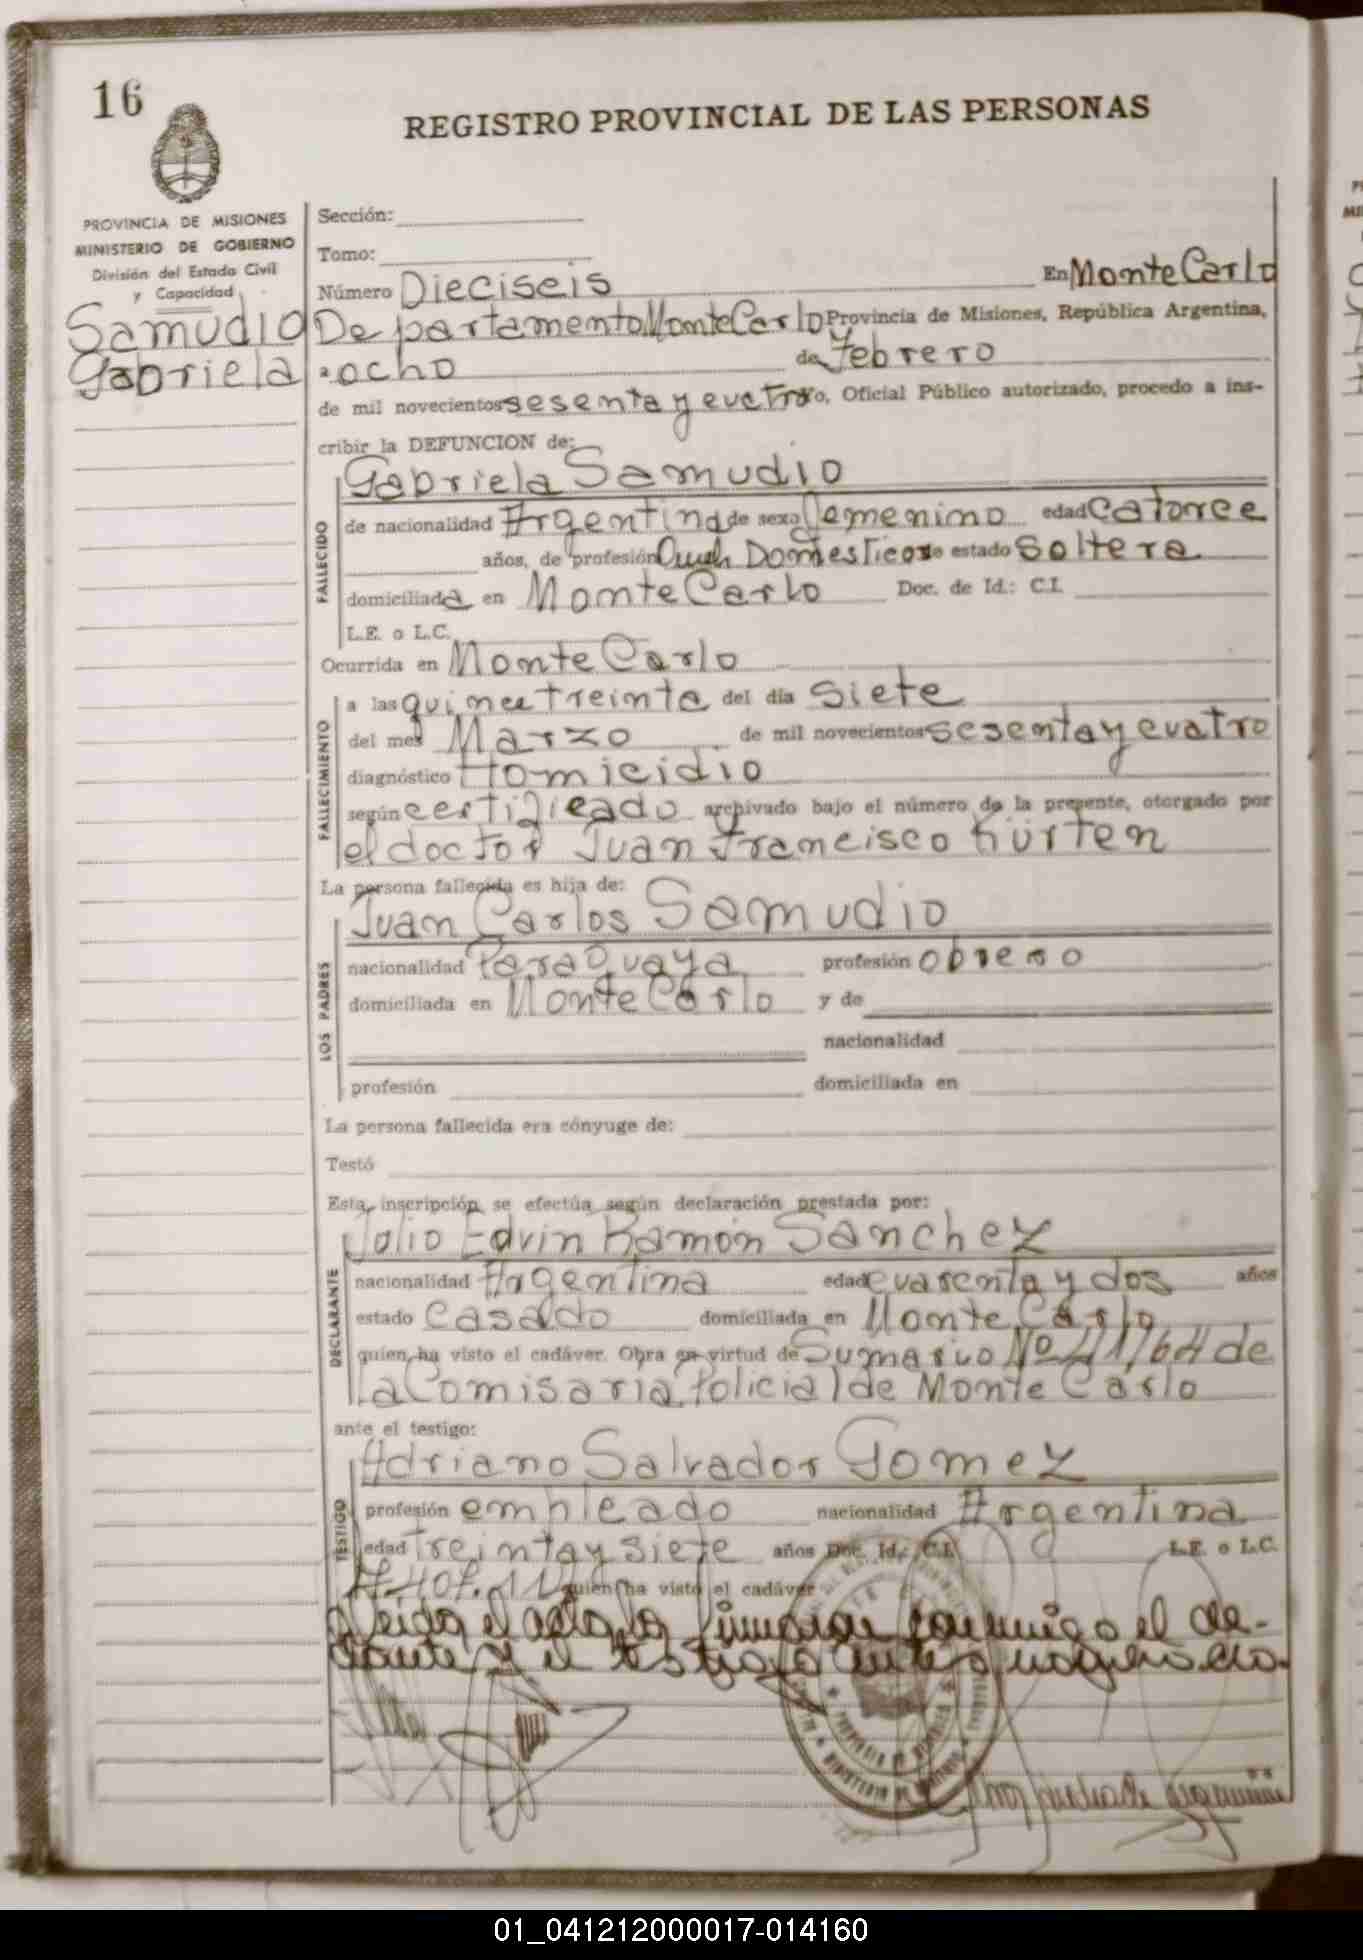 16
REGISTRO PROVINCIAL DE LAS PERSONAS
PROVINCIA DE MISIONES
MINISTERIO DE GOBIERNO
División del Estado Civil
y Capacidad
Samudio
Gabriela
Sección:
Tomo:
Número Dieciseis En Monte Carlo
Departamento Monte Carlo Provincia de Misiones, República Argentina,
a ocho de Febrero
de mil novecientos sesenta y cuatro yo, Oficial Público autorizado, procedo a ins-
cribir la DEFUNCION de:
FALLECIDO
Gabriela Samudio
de nacionalidad Argentina de sexo femenino edad catorce
años, de profesión Domesticos de estado soltera
domiciliada en Monte Carlo Doc. de Id.: C.I.
L.E. o L.C.
Ocurrida en Monte Carlo
FALLECIMIENTO
a las quince treinta del día siete
del mes Marzo de mil novecientos sesenta y cuatro
diagnóstico Homicidio
según certificado archivado bajo el número de la presente, otorgado por
el doctor Juan Francisco Kürten
La persona fallecida es hija de:
LOS PADRES
Juan Carlos Samudio
nacionalidad Paraguaya profesión obrero
domiciliada en Monte Carlo y de
nacionalidad
profesión domiciliada en
La persona fallecida era cónyuge de:
Testó
Esta inscripción se efectúa según declaración prestada por:
DECLARANTE
Julio Edvin Ramón Sanchez
nacionalidad Argentina edad cuarenta y dos años
estado casado domiciliada en Monte Carlo
quien ha visto el cadáver. Obra en virtud de Sumario Nº 41/64 de
la Comisaria Policial de Monte Carlo
ante el testigo:
TESTIGO
Adriano Salvador Gomez
profesión empleado nacionalidad Argentina
edad treinta y siete años Doc. Id.: C.I. L.E. o L.C.
quien ha visto el cadáver
Leida el acta la firman conmigo el de-
y el testigo antes
01_041212000017-014160